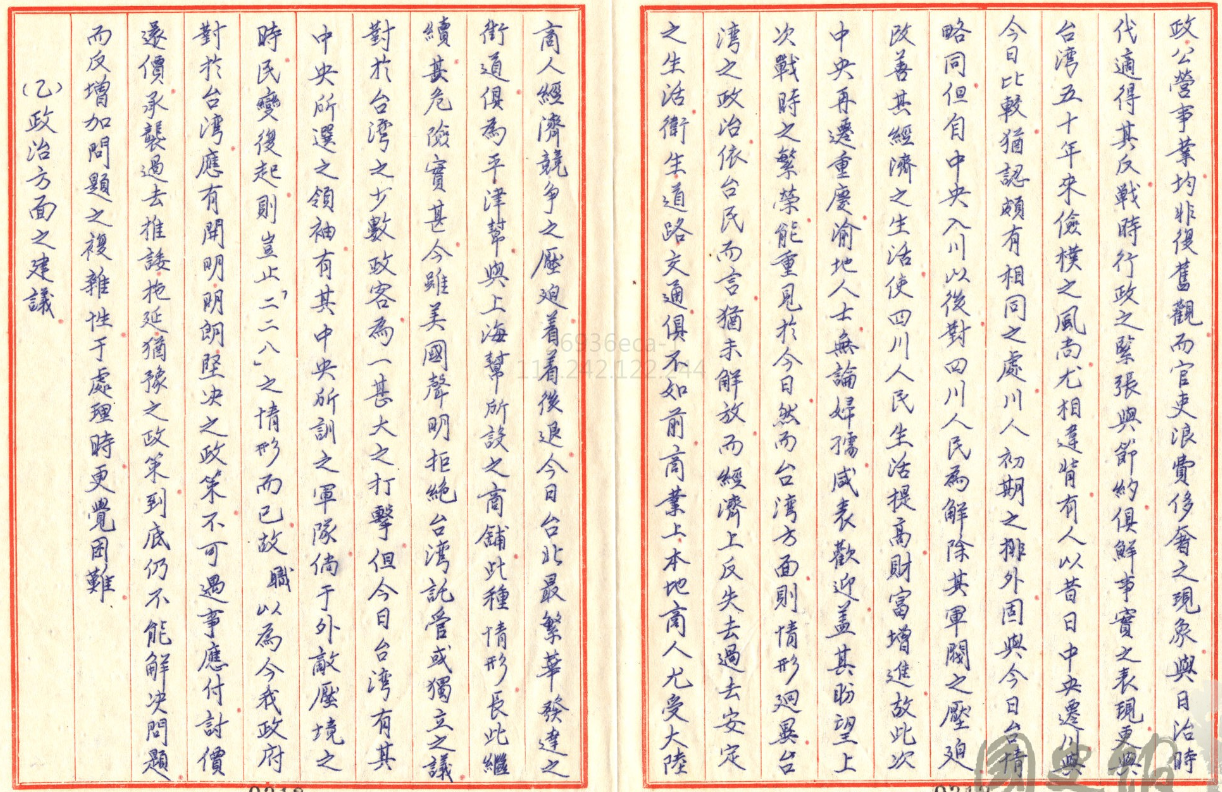 政公營事業均非復舊觀而官吏浪費侈奢之現象與日治時
代適得其反戰時行政之緊張與節約俱鮮事實之表現更與
台湾五十年來儉樸之風尚尤相違背有人以昔日中央遷川與
今日比較猶認頗有相同之處川人初期之排外固與今日台情
略同但自中央入川以後對四川人民為解除其軍閥之壓迫
改善其經濟之生活使四川人民生活提高財富增進故此次
中央再遷重慶渝地人士無論婦孺咸表歡迎蓋其盼望上
次戰時之繁榮能重見於今日然而台湾方面則情形迥異台
湾之政治依台民而言猶未解放而經濟上反失去過去安定
之生活衛生道路交通俱不如前商業上本地商人尤受大陸
商人經濟競争之壓迫着着後退今日台北最繁華發達之
街道俱為平津幫與上海幫所設之商舖此種情形長此繼
續甚危險實甚今雖美國聲明拒絶台湾託管或獨立之議
對於台湾之少數政客為一甚大之打擊但今日台湾有其
中央所選之領袖有其中央所訓之軍隊倘于外敵壓境之
時民變後起則豈止「二二八」之情形而已故職以為今我政府
對於台湾應有開明明朗堅决之政策不可遇事應付討價
還價承襲過去推諉拖延猶豫之政策到底仍不能解决問題
而反增加問題之複雜性于處理時更覺困難
(乙)政治方面之建議
國史館
6936eca-
242.122.244